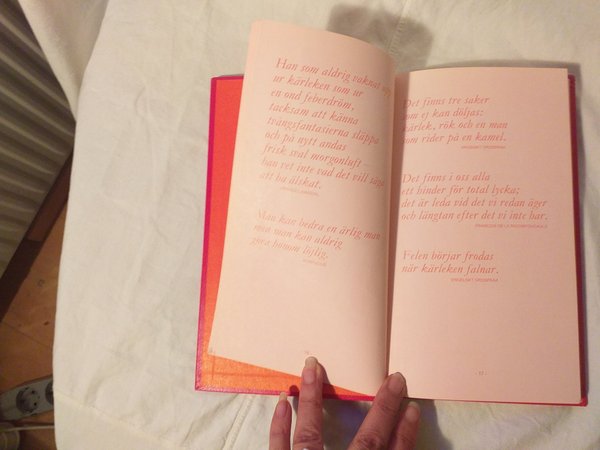 Han som aldrig vaknat upp
ur kärleken som ur
en ond feberdröm,
tacksam att känna
tvångsfantasierna släppa
och på nytt andas
frisk sval morgonluft
han vet inte vad det vill säga
att ha älskat.
Man kan bedra en ärlig man
men man kan aldrig
göra honom löjlig.
Det finns tre saker
som ej kan döljas:
kärlek, rök och en man
som rider på en kamel.
ARABISKT ORDSPRÅK
Det finns i oss alla
ett hinder för total lycka;
det är leda vid det vi redan äger
och längtan efter det vi inte har.
Felen börjar frodas
när kärleken falnar.
ENGELSKT ORDSPRÅK